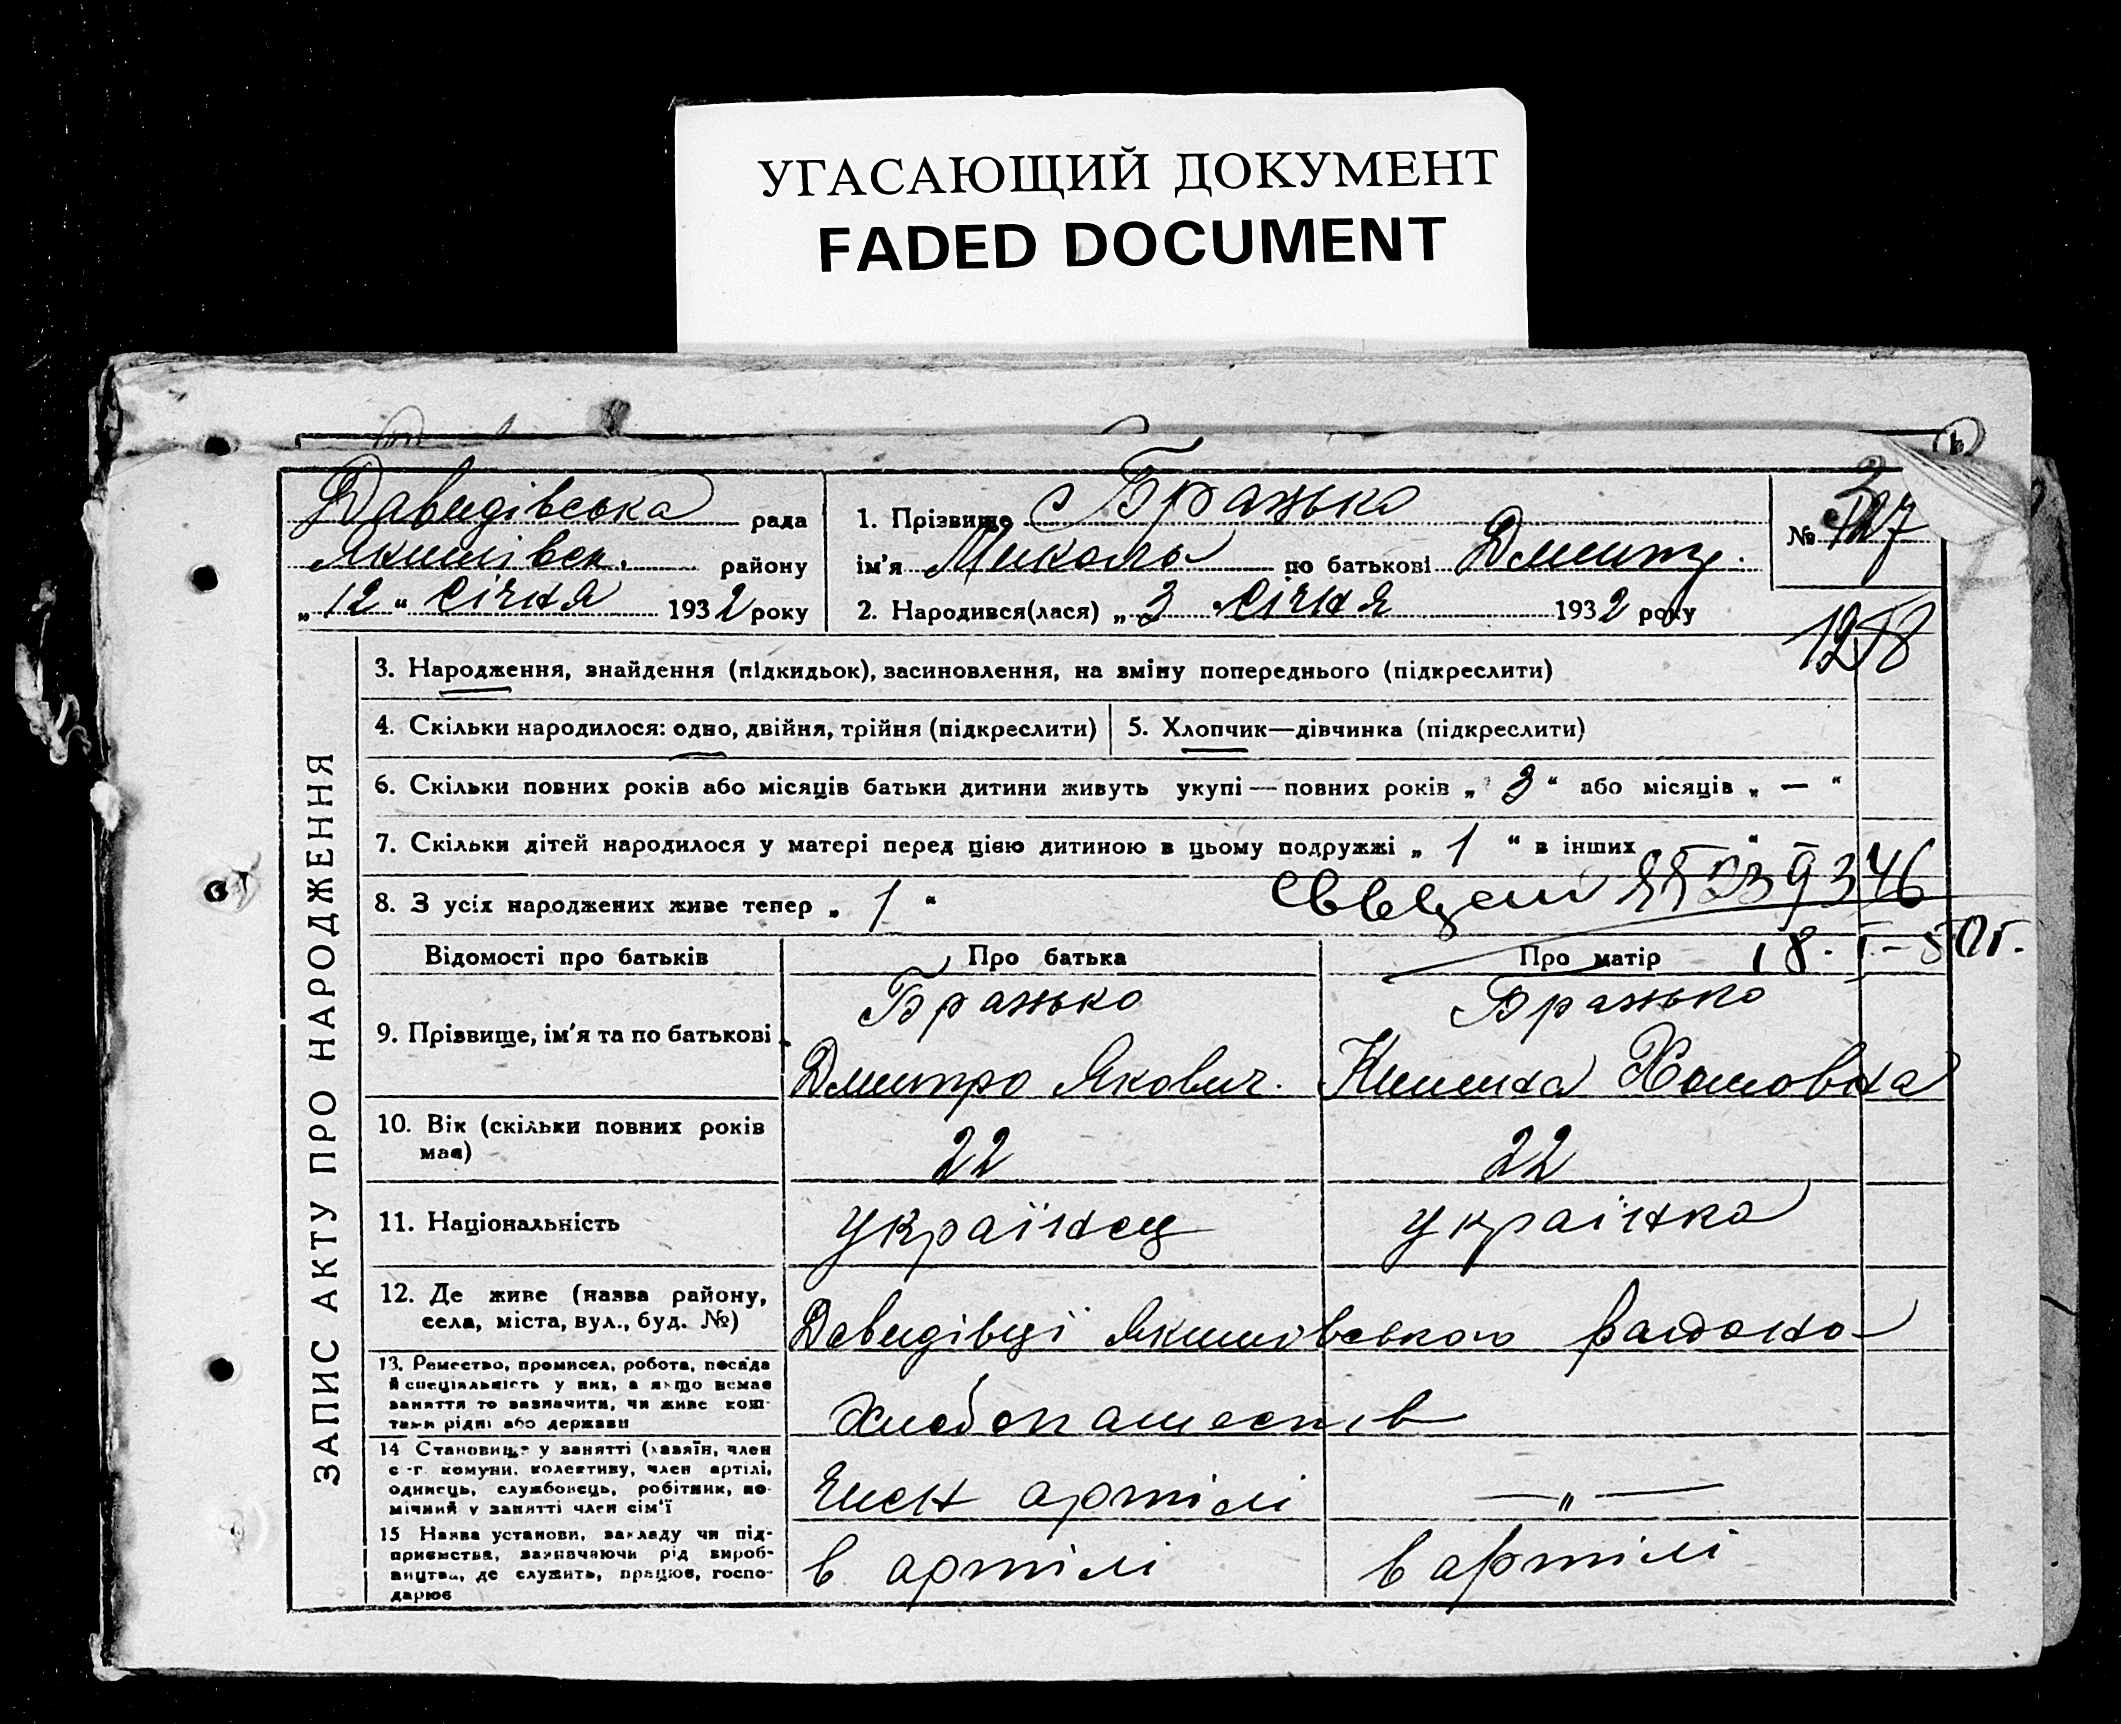 УГАСАЮЩИЙ ДОКУМЕНТ
FADED DOCUMENT
Давидівська рада
Якимівськ. району
„12“ січня 1932 року
1. Прізвище Бражько
ім'я Микола по батькові Дмитр.
2. Народився(лася) „3 січня 1932 року
№ 127
1258
ЗАПИС АКТУ ПРО НАРОДЖЕННЯ
3. Народження, знайдення (підкидьок), засиновлення, на зміну попереднього (підкреслити)
4. Скільки народилося: одно, двійня, трійня (підкреслити)
5. Хлопчик—дівчинка (підкреслити)
6. Скільки повних років або місяців батьки дитини живуть укупі — повних років „ 3 “ або місяців „ — “
7. Скільки дітей народилося у матері перед цією дитиною в цьому подружжі „ 1 “ в інших „ — “
8. З усіх народжених живе тепер „ 1 “
039346
18.I-50г.
Відомості про батьків
Про батька
Про матір
9. Прізвище, ім'я та по батькові
Бражько
Дмитро Якович.
Бражько
Хомовна
10. Вік (скільки повних років
має)
22
22
11. Національність
українец
українка
12. Де живе (назва району,
села, міста, вул., буд. №)
Давидівці Якимівського району
13. Ремество, промисел, робота, посада
й спеціяльність у них, а якщо немає
заняття то зазначити, чи живе кош-
тами рідні або держави
Хлебопашеств
14 Становище у занятті (хазяїн, член
с-г. комуни, колективу, член артілі,
одинець, службовець, робітник, по-
мічний у занятті член сім'ї
Член артілі
— „ —
15 Назва установи, закладу чи під-
приємства, зазначаючи рід вироб-
ництва, де служить, працює, госпо-
дарює
в артілі
в артілі